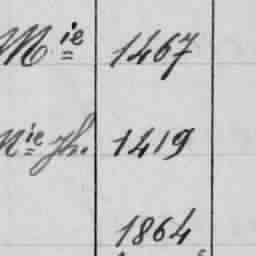 Mie 1467
nie Jh. 1419
1864